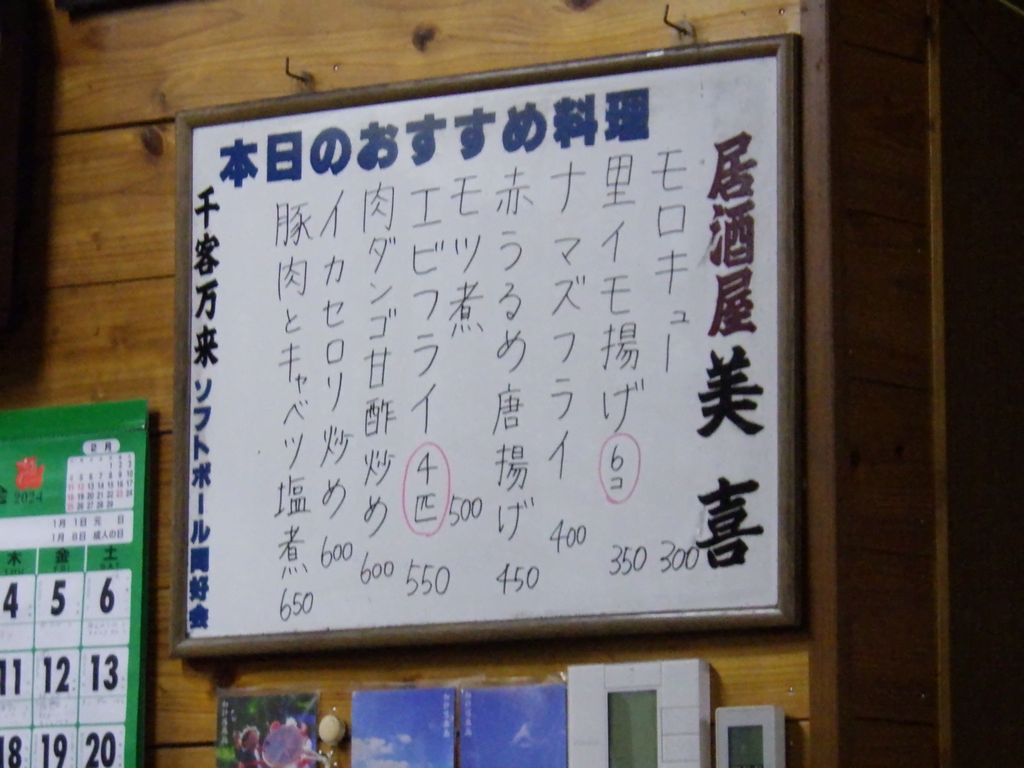 本日のおすすめ料理
居酒屋 美喜
モロキュー 300
里イモ揚げ 6コ 350
ナマズフライ 400
赤うるめ唐揚げ 450
モツ煮 500
エビフライ 4匹 550
肉ダンゴ甘酢炒め 600
イカセロリ炒め 600
豚肉とキャベツ塩煮 650
千客万来 ソフトボール同好会
2024
2月
1月 1日 元 日
1月 8日 成人の日
木 金 土
4 5 6
11 12 13
18 19 20